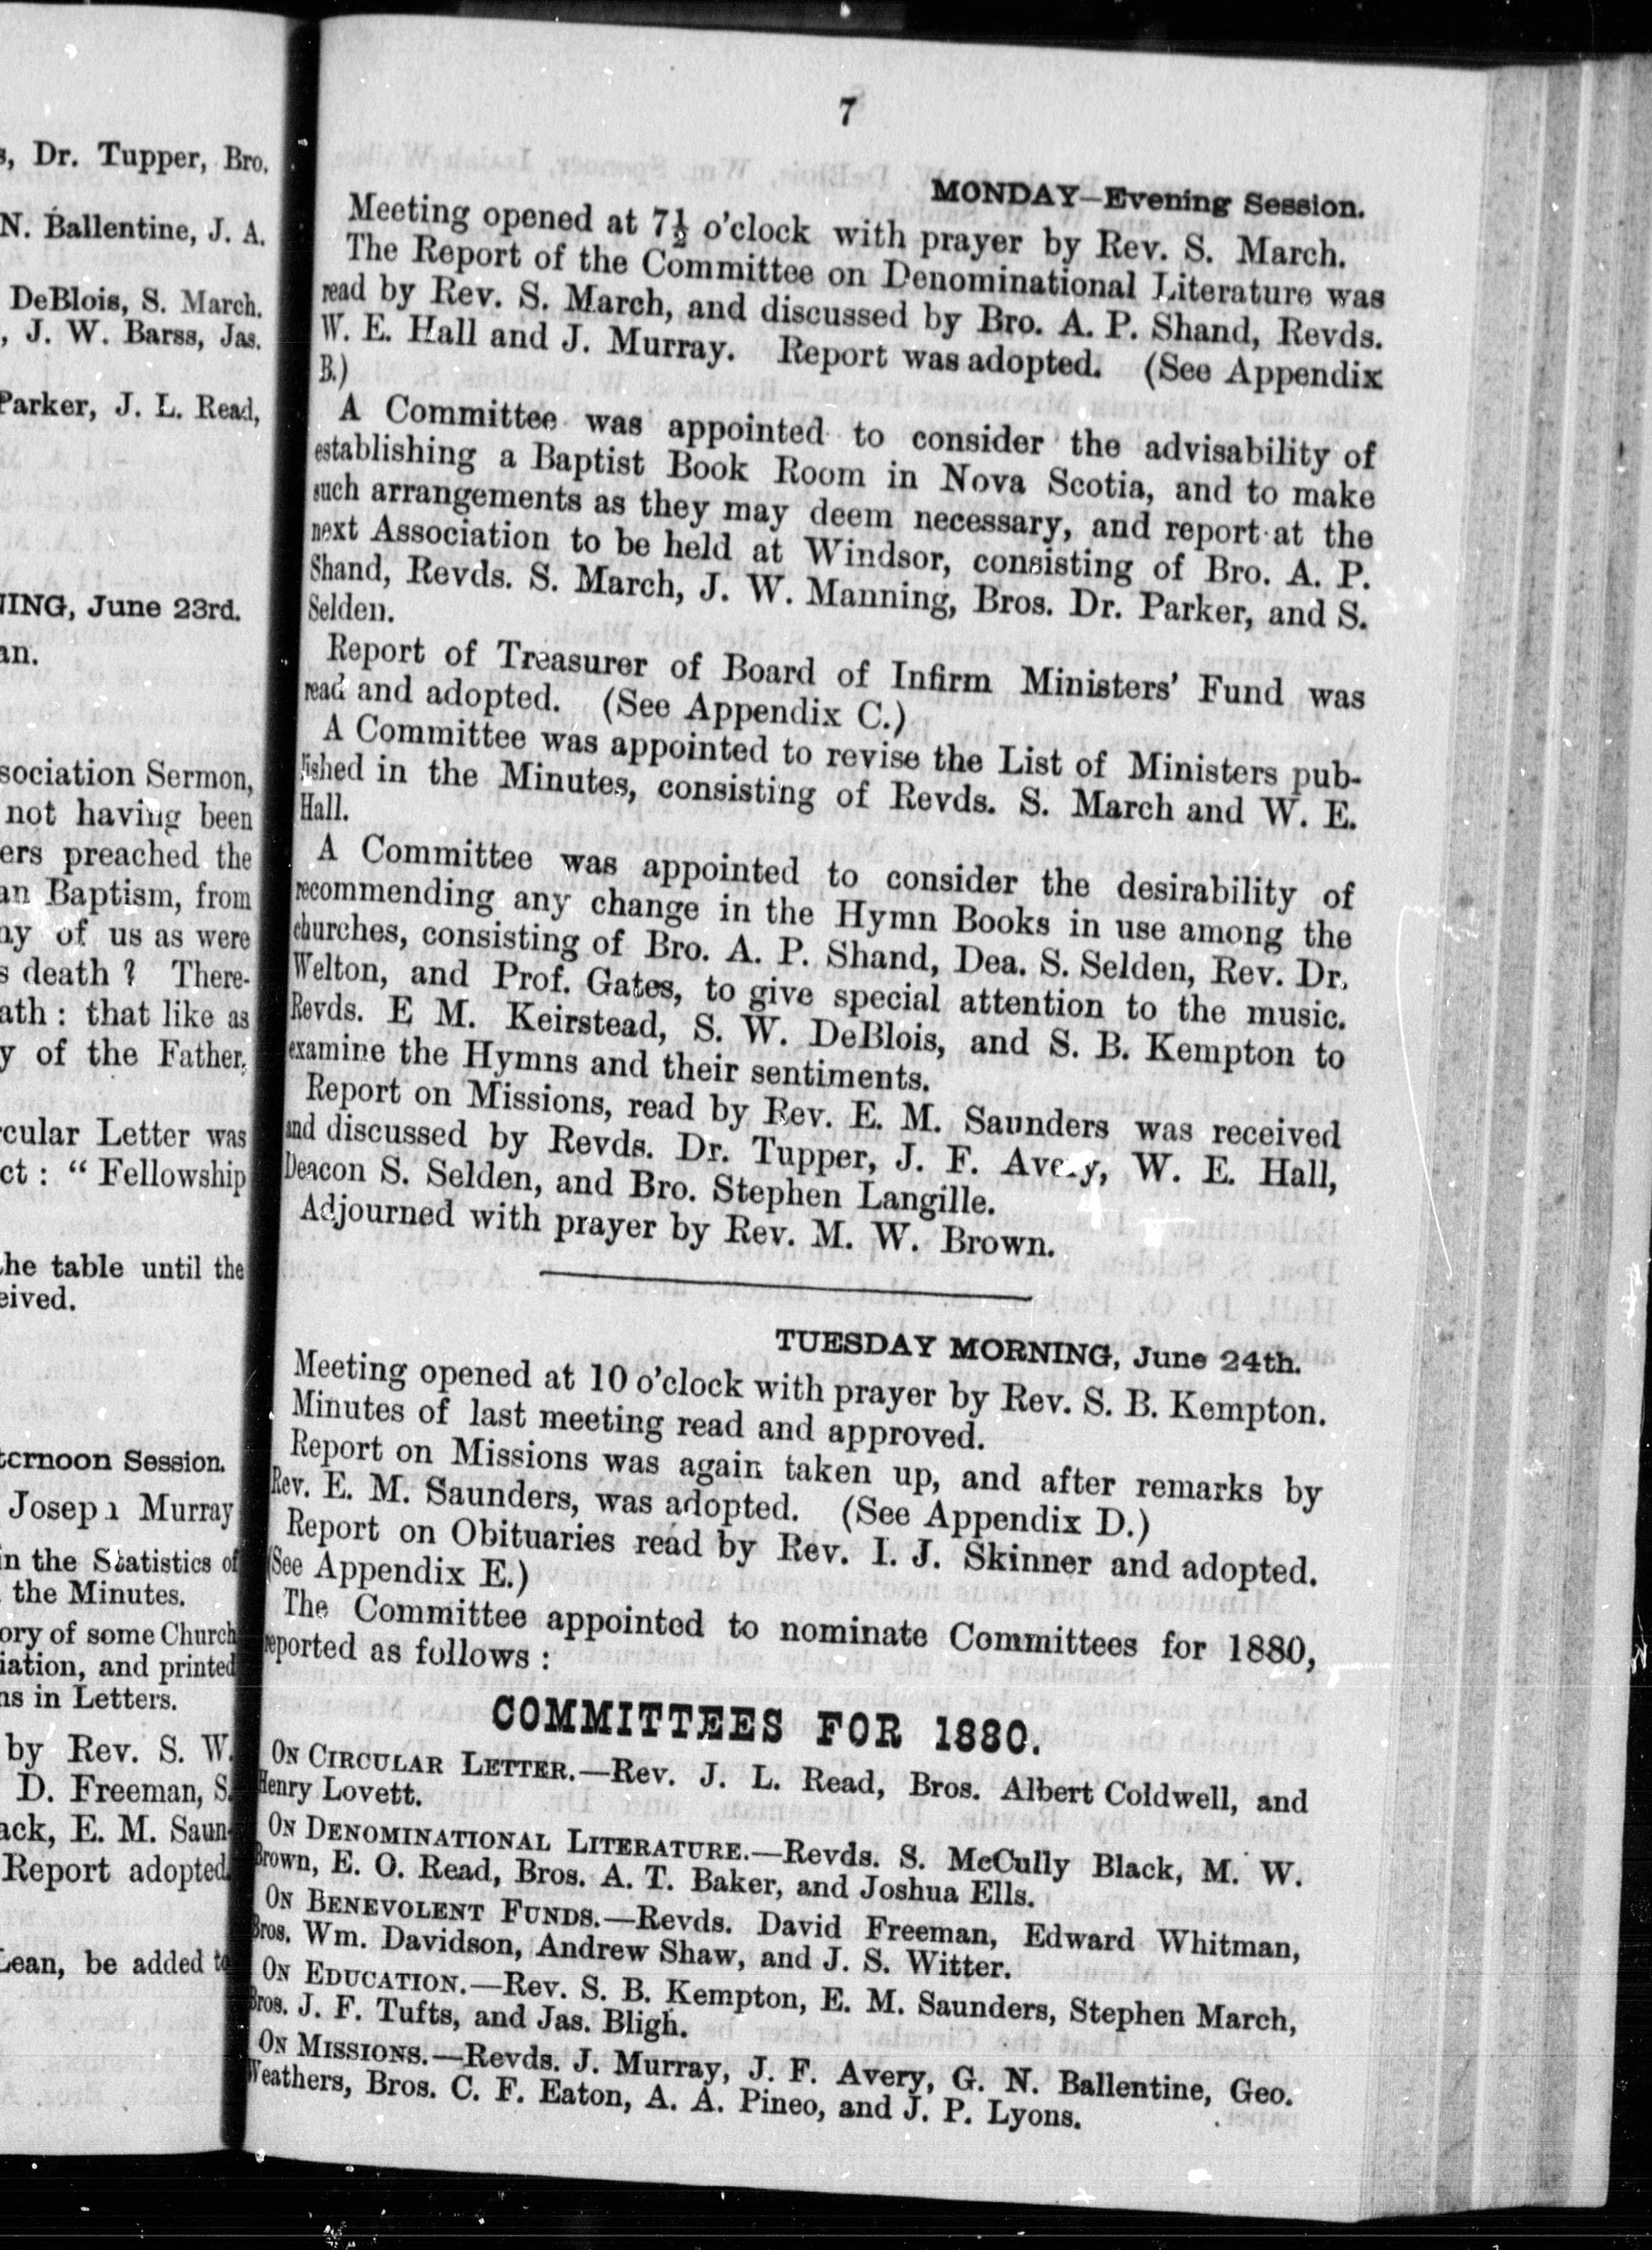 s, Dr. Tupper, Bro.
N. Ballentine, J. A.
DeBlois, S. March.
, J. W. Barss, Jas.
Parker, J. L. Read,
NING, June 23rd.
an.
sociation Sermon,
not having been
ers preached the
an Baptism, from
ny of us as were
s death ? There-
ath : that like as
y of the Father,
rcular Letter was
ct : “ Fellowship
the table until the
eived.
ternoon Session.
Joseph Murray
in the Statistics of
the Minutes.
ory of some Church
iation, and printed
ns in Letters.
by Rev. S. W.
D. Freeman, S.
ack, E. M. Saun-
Report adopted.
Lean, be added to
7
MONDAY—Evening Session.
Meeting opened at 7½ o'clock with prayer by Rev. S. March.
The Report of the Committee on Denominational Literature was
read by Rev. S. March, and discussed by Bro. A. P. Shand, Revds.
W. E. Hall and J. Murray. Report was adopted. (See Appendix
B.)
A Committee was appointed to consider the advisability of
establishing a Baptist Book Room in Nova Scotia, and to make
such arrangements as they may deem necessary, and report at the
next Association to be held at Windsor, consisting of Bro. A. P.
Shand, Revds. S. March, J. W. Manning, Bros. Dr. Parker, and S.
Selden.
Report of Treasurer of Board of Infirm Ministers' Fund was
read and adopted. (See Appendix C.)
A Committee was appointed to revise the List of Ministers pub-
lished in the Minutes, consisting of Revds. S. March and W. E.
Hall.
A Committee was appointed to consider the desirability of
recommending any change in the Hymn Books in use among the
churches, consisting of Bro. A. P. Shand, Dea. S. Selden, Rev. Dr.
Welton, and Prof. Gates, to give special attention to the music.
Revds. E M. Keirstead, S. W. DeBlois, and S. B. Kempton to
examine the Hymns and their sentiments.
Report on Missions, read by Rev. E. M. Saunders was received
and discussed by Revds. Dr. Tupper, J. F. Avery, W. E. Hall,
Deacon S. Selden, and Bro. Stephen Langille.
Adjourned with prayer by Rev. M. W. Brown.
TUESDAY MORNING, June 24th.
Meeting opened at 10 o'clock with prayer by Rev. S. B. Kempton.
Minutes of last meeting read and approved.
Report on Missions was again taken up, and after remarks by
Rev. E. M. Saunders, was adopted. (See Appendix D.)
Report on Obituaries read by Rev. I. J. Skinner and adopted.
(See Appendix E.)
The Committee appointed to nominate Committees for 1880,
reported as follows :
COMMITTEES FOR 1880.
ON CIRCULAR LETTER.—Rev. J. L. Read, Bros. Albert Coldwell, and
Henry Lovett.
ON DENOMINATIONAL LITERATURE.—Revds. S. McCully Black, M. W.
Brown, E. O. Read, Bros. A. T. Baker, and Joshua Ells.
ON BENEVOLENT FUNDS.—Revds. David Freeman, Edward Whitman,
Bros. Wm. Davidson, Andrew Shaw, and J. S. Witter.
ON EDUCATION.—Rev. S. B. Kempton, E. M. Saunders, Stephen March,
Bros. J. F. Tufts, and Jas. Bligh.
ON MISSIONS.—Revds. J. Murray, J. F. Avery, G. N. Ballentine, Geo.
Weathers, Bros. C. F. Eaton, A. A. Pineo, and J. P. Lyons.